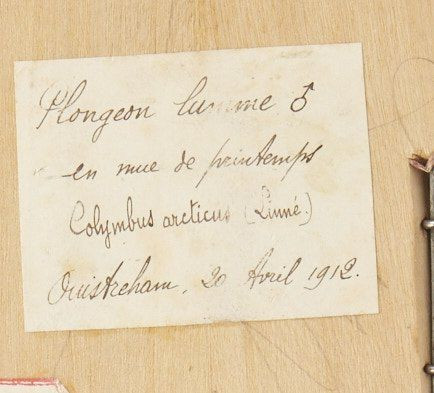 Plongeon lumme ♂
en mue de printemps
Colymbus arcticus (Linné.)
Ouistreham, 20 Avril 1912.